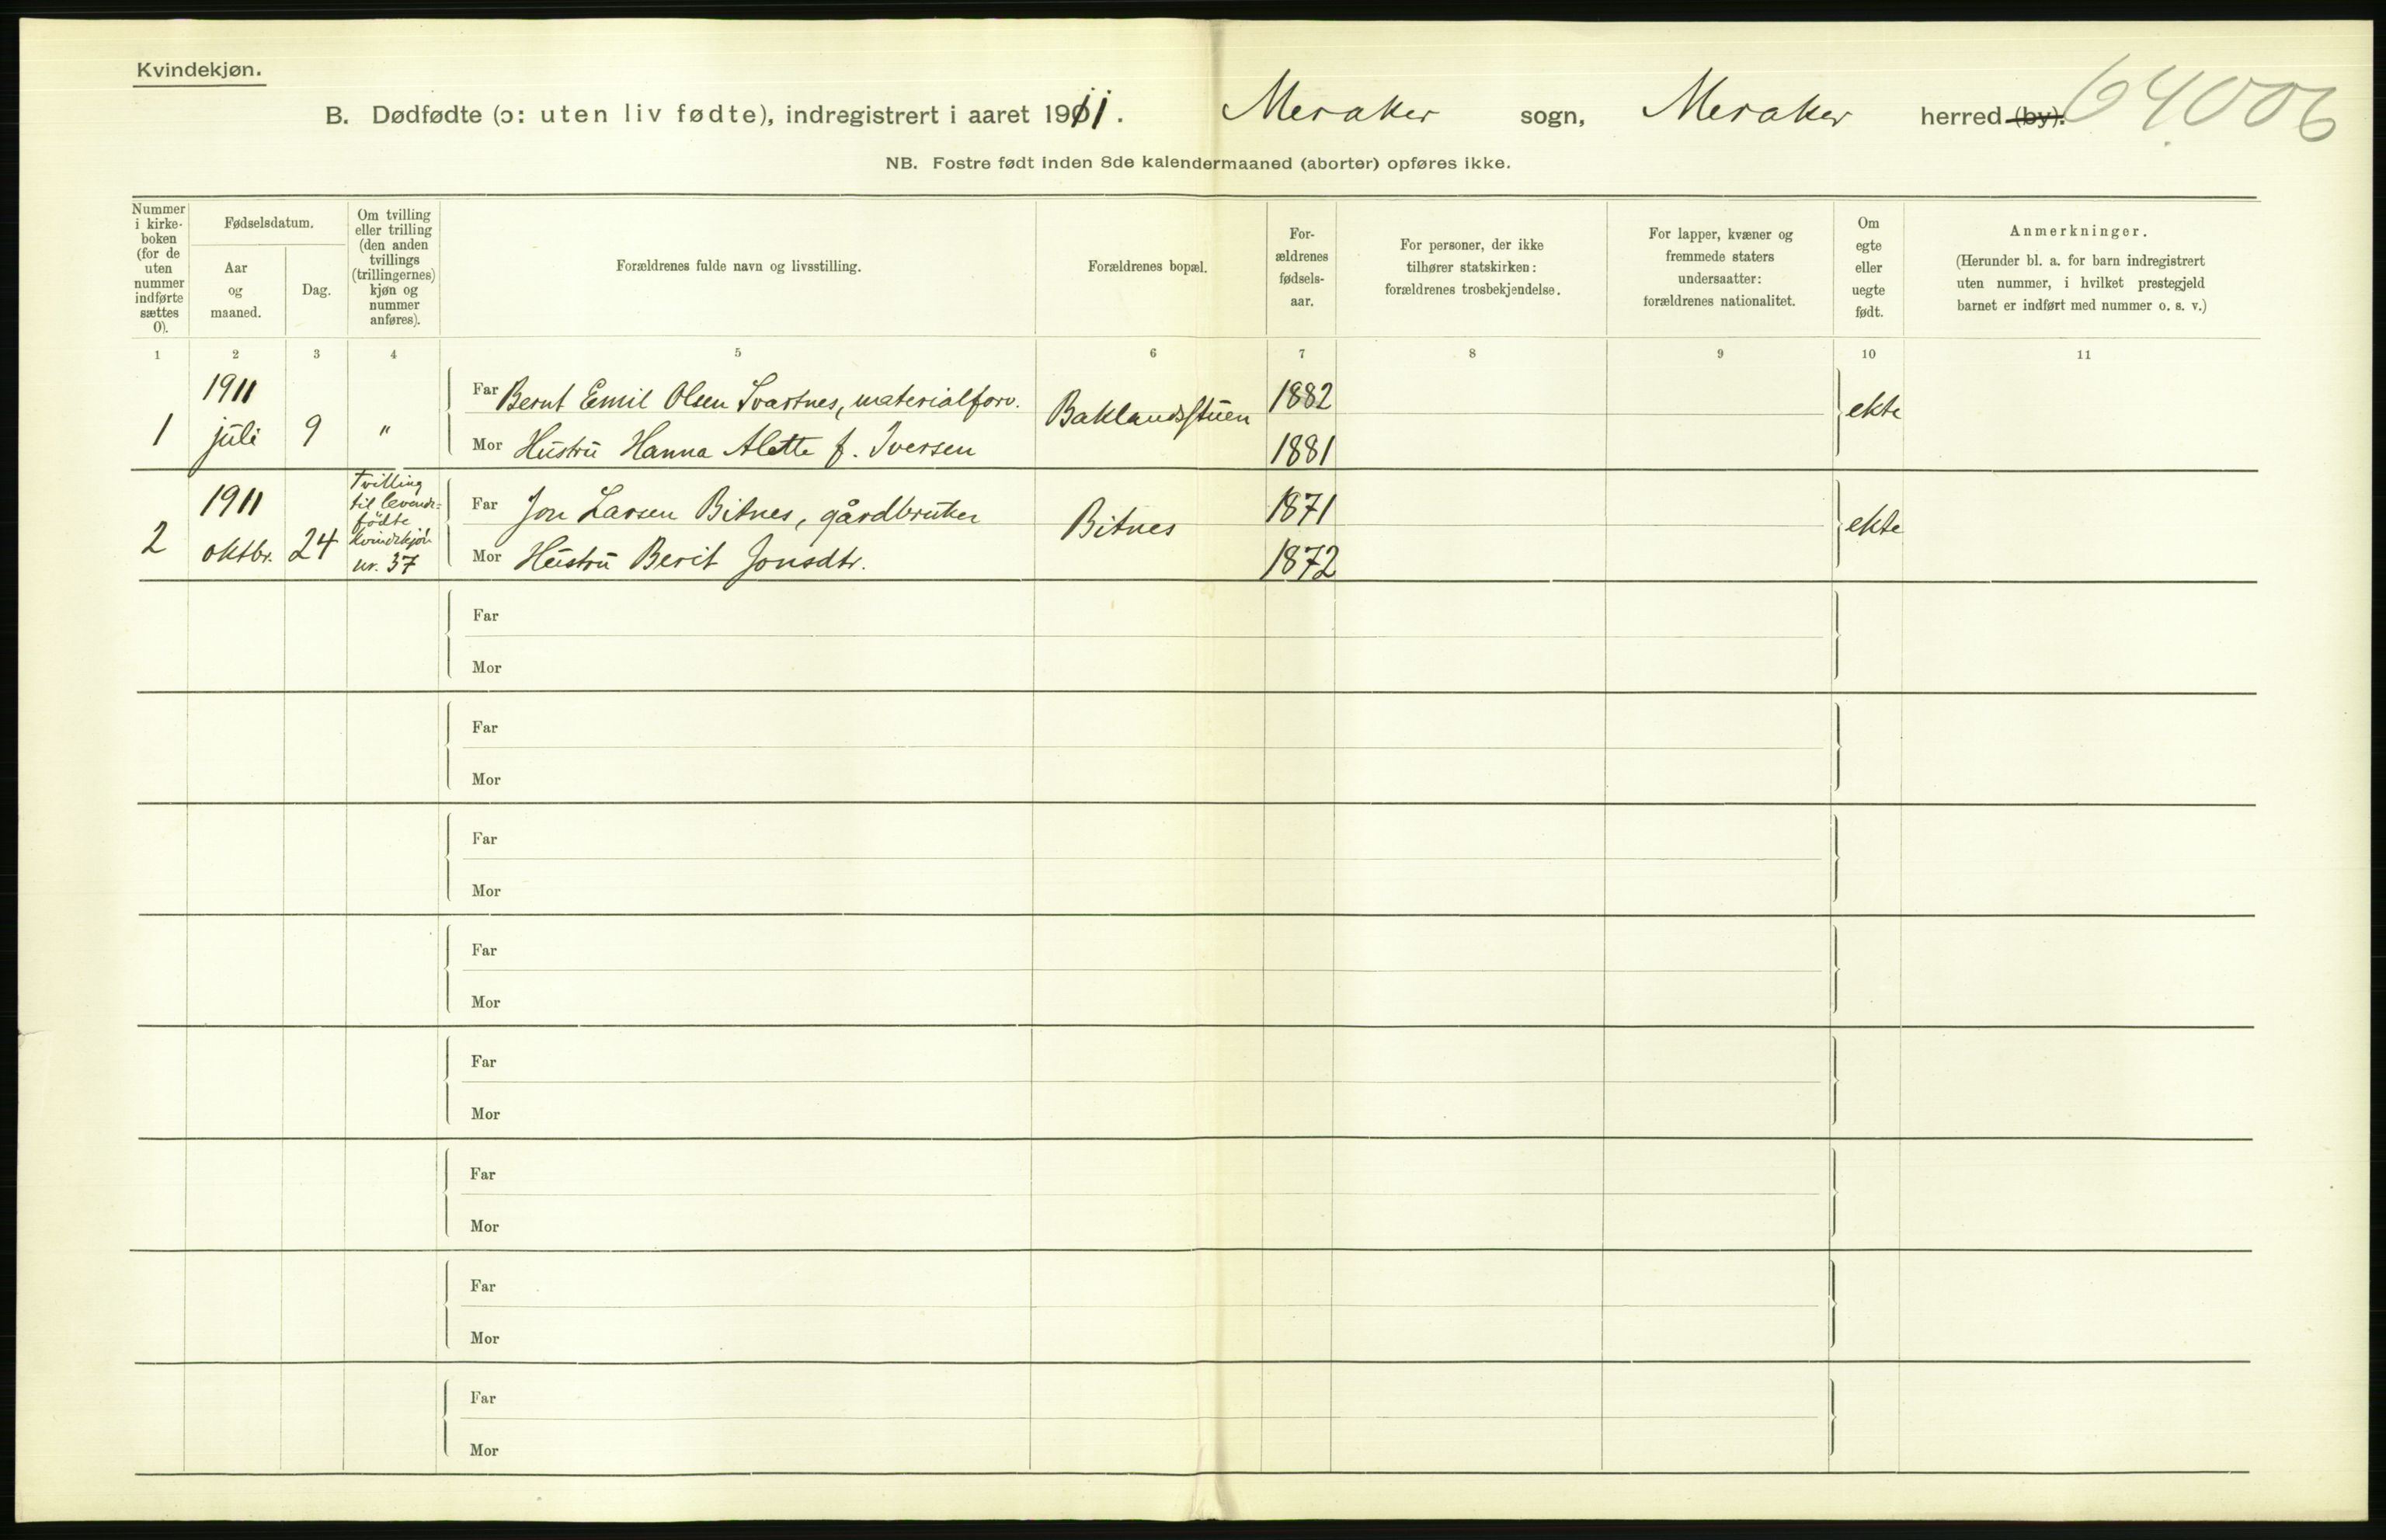 Kvindekjøn.
B. Dødfødte (ɔ: uten liv fødte), indregistrert i aaret 1911. Meraker sogn, Meraker herred (by). 64006
NB. Fostre født inden 8de kalendermaaned (aborter) opføres ikke.
Nummer i kirke-boken (for de uten nummer indførte sættes 0).
Fødselsdatum.
Aar og maaned.
Dag.
Om tvilling eller trilling (den anden tvillings (trillingernes) kjøn og nummer anføres).
Forældrenes fulde navn og livsstilling.
Forældrenes bopæl.
For-ældrenes fødsels-aar.
For personer, der ikke tilhører statskirken: forældrenes trosbekjendelse.
For lapper, kvæner og fremmede staters undersaatter: forældrenes nationalitet.
Om egte eller uegte født.
Anmerkninger.
(Herunder bl. a. for barn indregistrert uten nummer, i hvilket prestegjeld barnet er indført med nummer o. s. v.)
1 2 3 4 5 6 7 8 9 10 11
1 1911 juli 9 "
Far Bernt Emil Olsen Svartnes, materialforv. Baklandsstuen 1882 ekte
Mor Hustru Hanna Alette f. Iversen 1881
2 1911 oktbr. 24
Tvilling
til levende-
fødte
kvindekjön
nr. 37
Far Jon Larsen Bitnes, gårdbruker Bitnes 1871 ekte
Mor Hustru Berit Jonsdtr. 1872
Far
Mor
Far
Mor
Far
Mor
Far
Mor
Far
Mor
Far
Mor
Far
Mor
Far
Mor